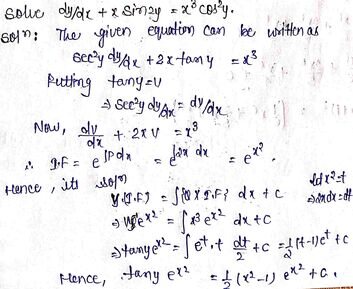 Solve dy/dx + x Sin2y = x³ cos²y.
Solⁿ: The given equation can be written as
sec²y dy/dx + 2x tany = x³
Putting tany = v
⇒ sec²y dy/dx = dv/dx
Now, dv/dx + 2xv = x³
∴ I.F = e^∫Pdx = e^∫2x dx = e^x²
Hence, its solⁿ
y(I.F) = ∫{Q x I.F} dx + c
let x² = t
⇒ 2xdx = dt
⇒ v e^x² = ∫ x³ e^x² dx + c
⇒ tany e^x² = ∫ e^t . t dt/2 + c = 1/2 (t-1)e^t + c
Hence, tany e^x² = 1/2 (x²-1) e^x² + c.